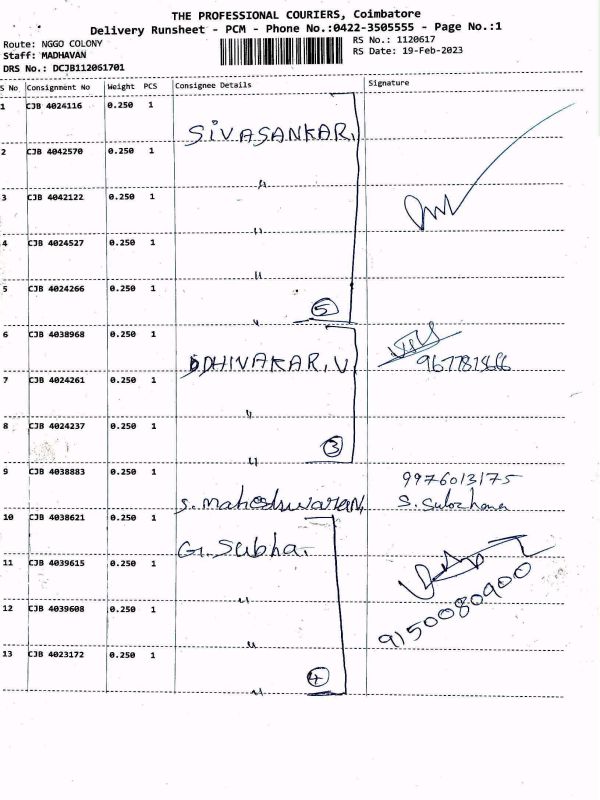 THE PROFESSIONAL COURIERS, Coimbatore
Delivery Runsheet - PCM - Phone No.:0422-3505555 - Page No.:1
Route: NGGO COLONY
RS No.: 1120617
Staff: MADHAVAN
RS Date: 19-Feb-2023
DRS No.: DCJB112061701
S No Consignment No Weight PCS Consignee Details Signature
1 CJB 4024116 0.250 1
SIVASANKAR,
2 CJB 4042570 0.250 1
"
3 CJB 4042122 0.250 1
"
4 CJB 4024527 0.250 1
"
5 CJB 4024266 0.250 1
5
"
6 CJB 4038968 0.250 1
DHIVAKAR, V
7 CJB 4024261 0.250 1
"
8 CJB 4024237 0.250 1
3
"
9 CJB 4038883 0.250 1
9976013175
S. Maheshwaran,
10 CJB 4038621 0.250 1
G. Subha.
11 CJB 4039615 0.250 1
"
12 CJB 4039608 0.250 1
9150080900
"
13 CJB 4023172 0.250 1
4
"